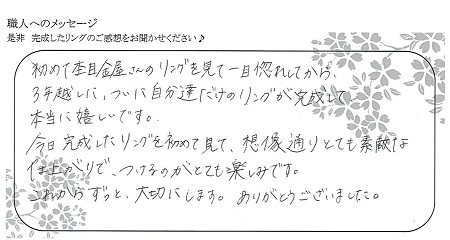 職人へのメッセージ
是非 完成したリングのご感想をお聞かせください♪
初めて杢目金屋さんのリングを見て一目惚れしてから、
3年越しに、ついに自分達だけのリングが完成して
本当に嬉しいです。
今日完成したリングを初めて見て、想像通りとても素敵な
仕上がりで、つけるのがとても楽しみです。
これからずっと、大切にします。ありがとうございました。